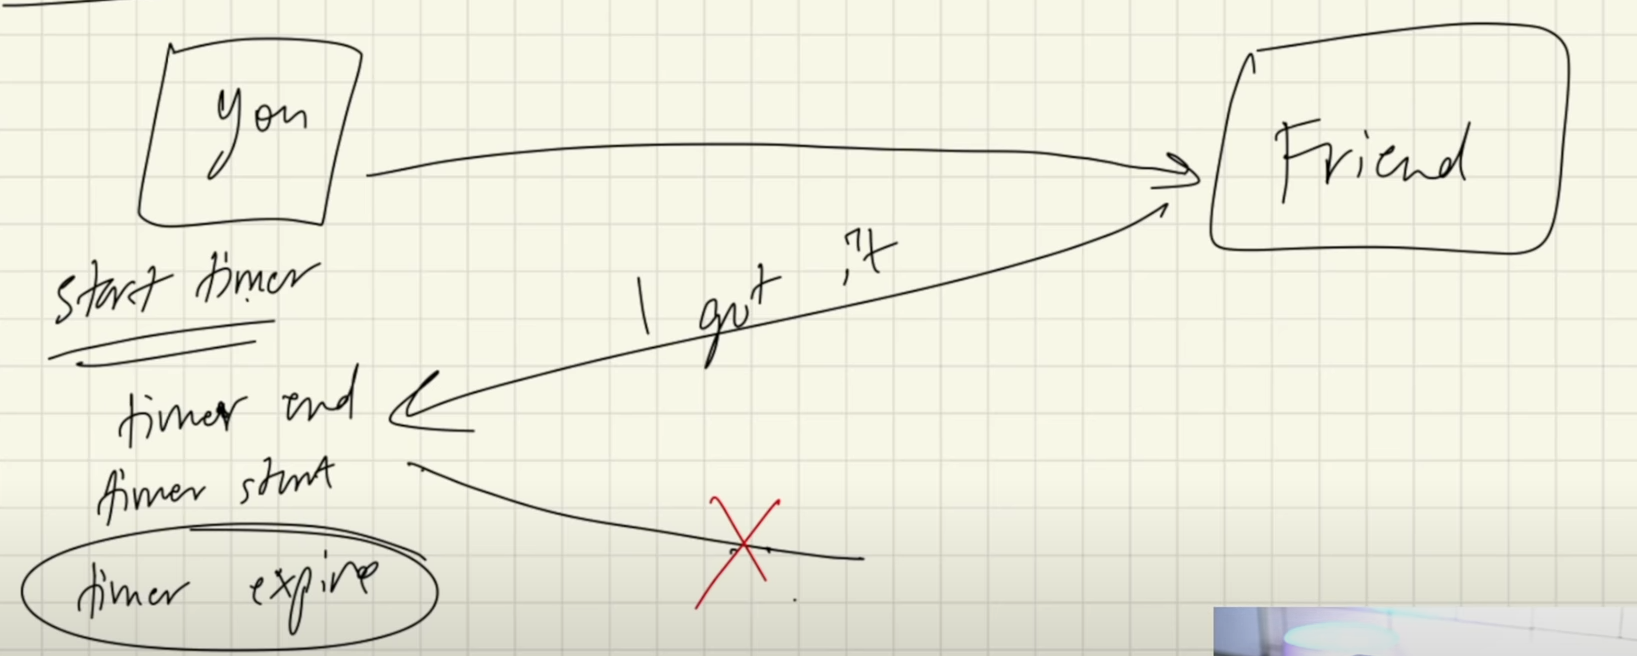 You
Friend
start timer
I got it
timer end
timer start
timer expire